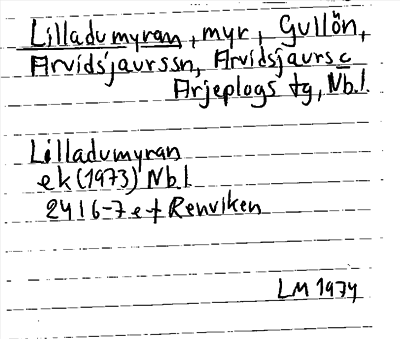 Lilladumyran, myr, Gullön,
Arvidsjaurssn, Arvidsjaurs o
Arjeplogs tg, Nb.l.
Lilladumyran
ek (1973) Nb.l
2416-7 e+f Renviken
LM 1974